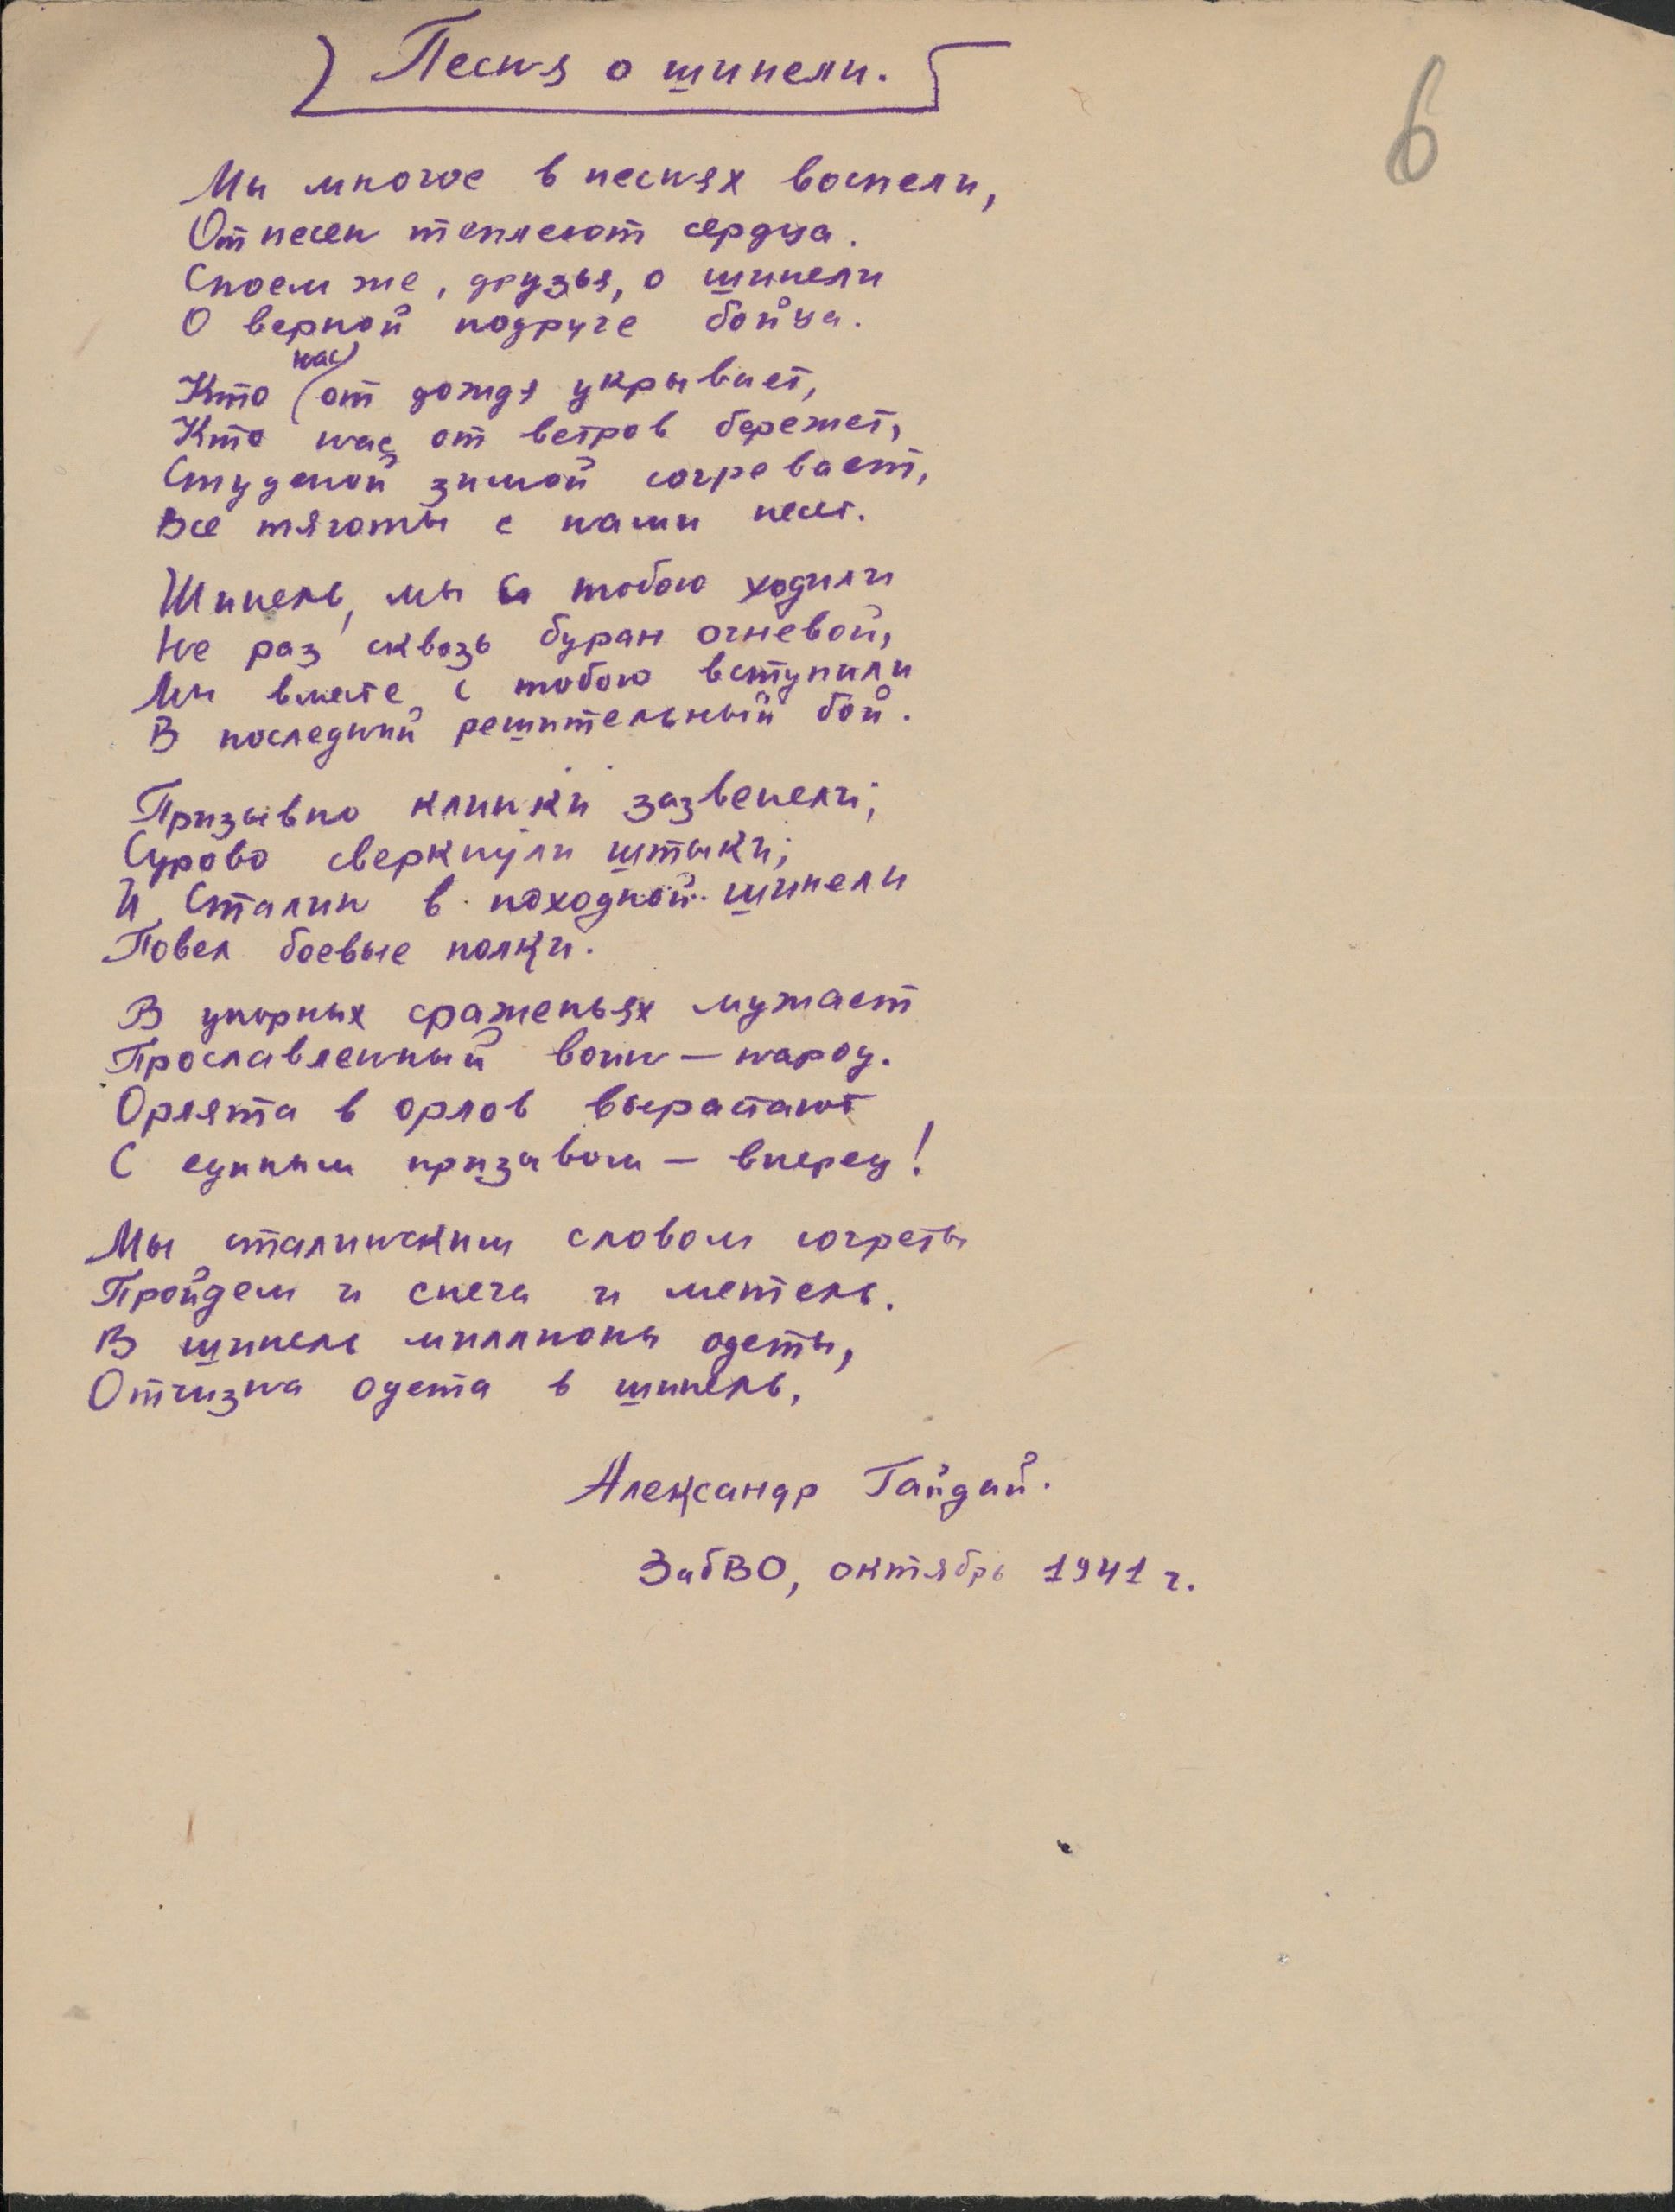 Песня о шинели.
6
Мы многое в песнях воспели,
От песен теплеют сердца.
Споем же, друзья, о шинели
О верной подруге бойца.
Кто нас от дождя укрывает,
Кто нас от ветров бережет,
Студеной зимой согревает,
Все тяготы с нами несет.
Шинель, мы с тобою ходили
Не раз сквозь буран огневой,
Мы вместе с тобою вступили
В последний решительный бой.
Призывно клинки зазвенели;
Сурово сверкнули штыки;
И Сталин в походной шинели
Повел боевые полки.
В упорных сраженьях мужает
Прославленный воин — народ.
Орлята в орлов вырастают
С единым призывом — вперед!
Мы сталинским словом согреты
Пройдем и снега и метель.
В шинель миллионы одеты,
Отчизна одета в шинель.
Александр Гайдай.
ЗабВО, октябрь 1941 г.